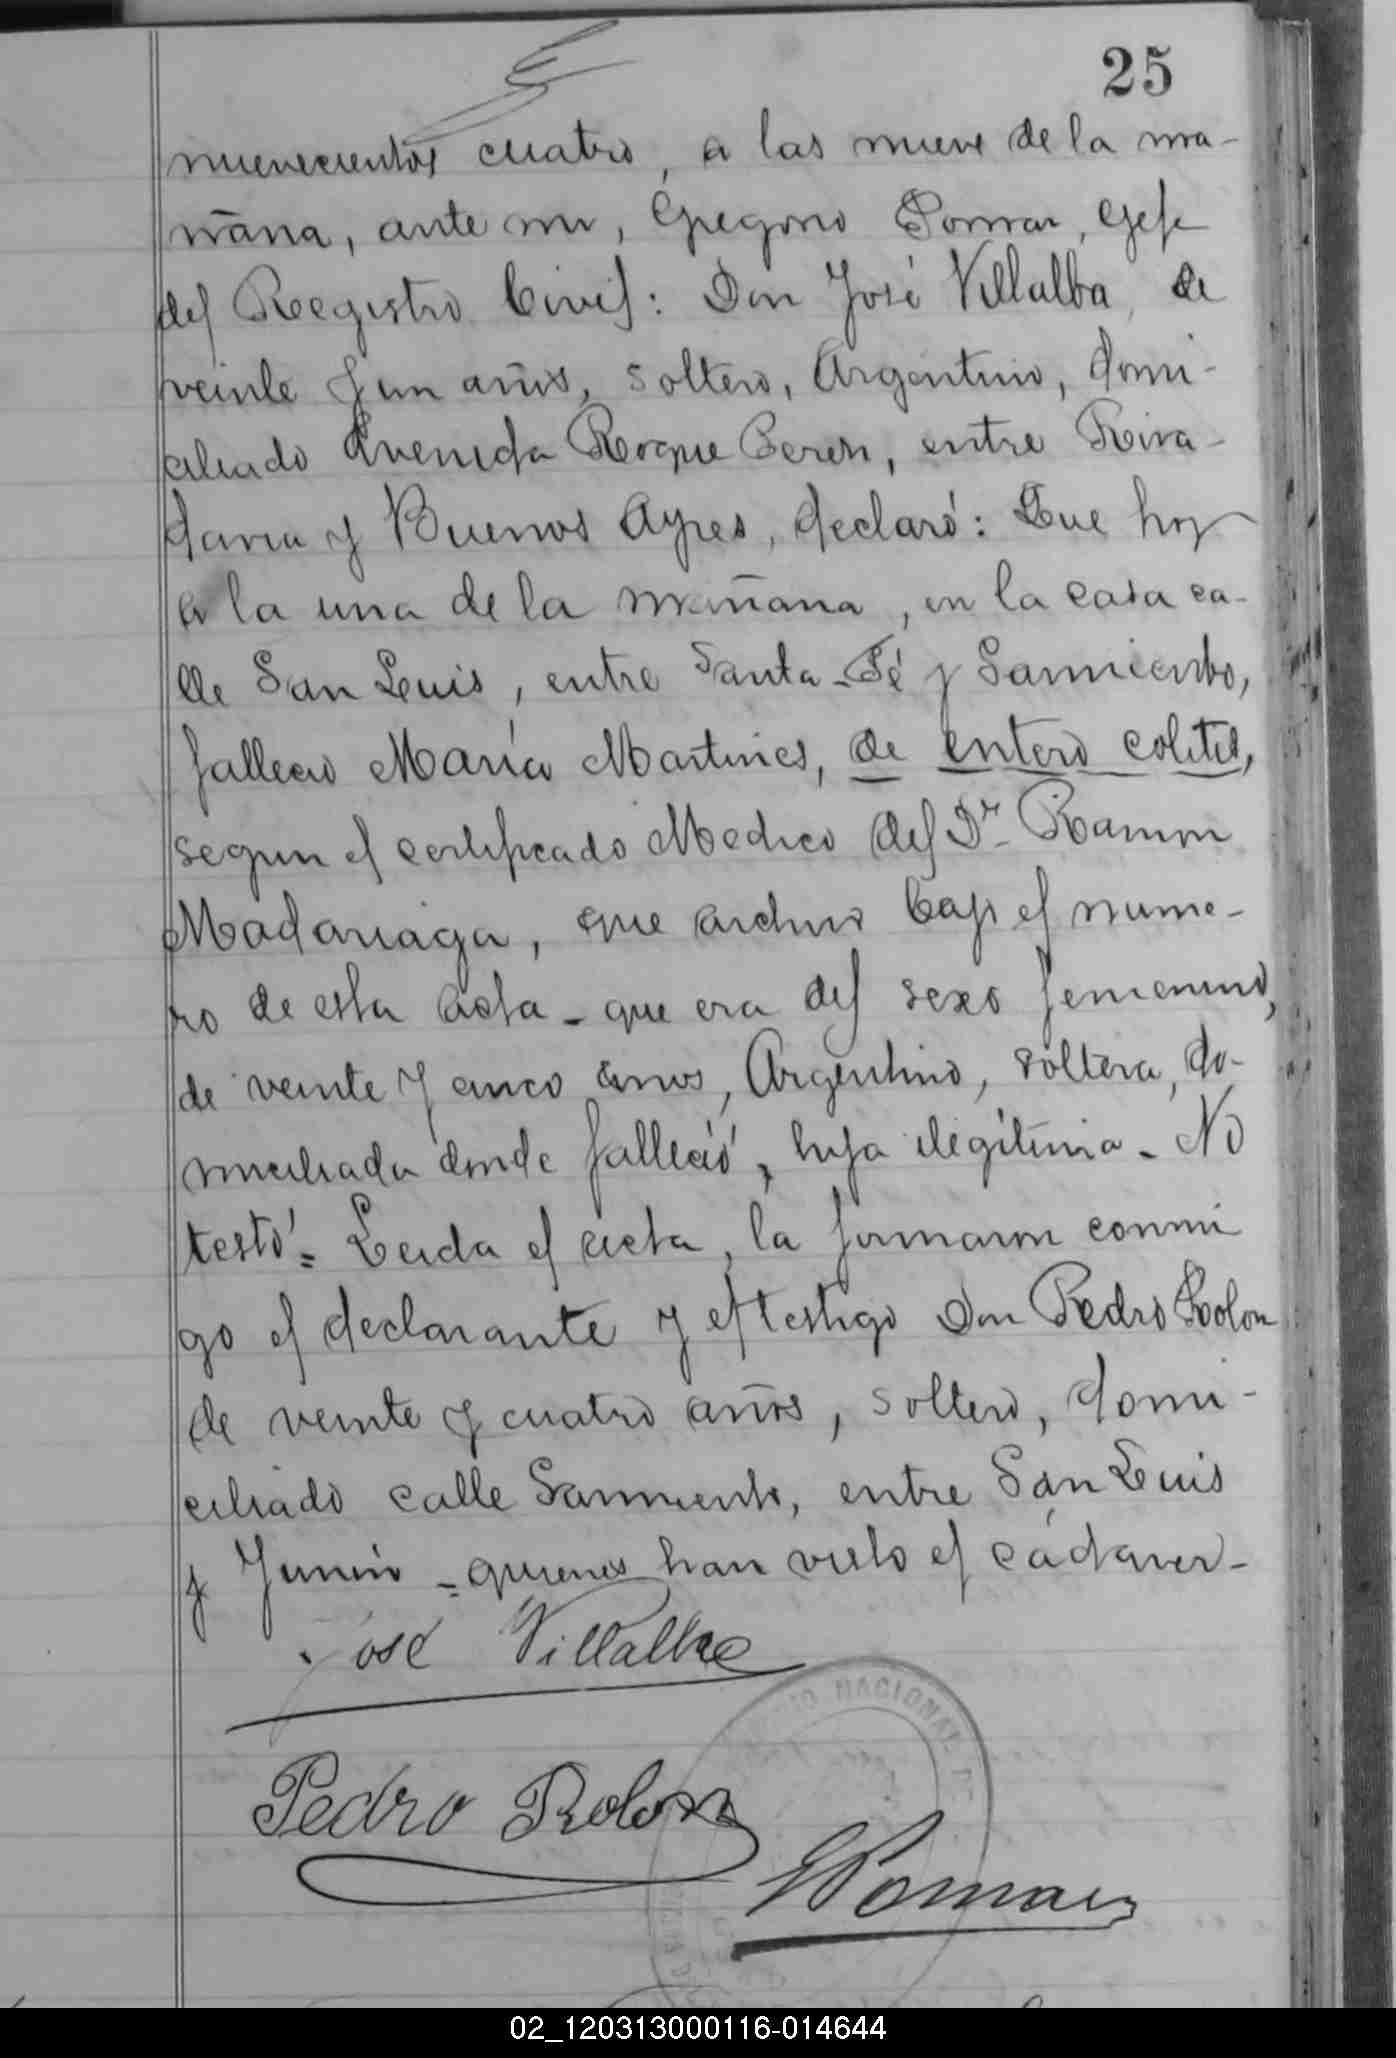 25
nuevecientos cuatro, a las nueve de la ma-
ñana, ante mi, Gregorio Pomar, Gefe
del Registro Civil: Don José Villalba, de
veinte y un años, soltero, Argentino, domi-
ciliado Avenida Roque Perez, entre Riva-
davia y Buenos Ayres, declaró: Que hoy
a la una de la mañana, en la casa ca-
lle San Luis, entre Santa-Fé y Sarmiento,
fallecio María Martines, de entero colitis,
segun el certificado Medico del Dr. Ramon
Madariaga, que archivo bajo el nume-
ro de esta acta - que era del sexo femenino,
de veinte y cinco años, Argentino, soltera, do-
miciliada donde falleció, hija ilegítima - No
testó = Leida el acta, la firmaron conmi
go el declarante y el testigo Don Pedro Rolon
de veinte y cuatro años, soltero, domi-
ciliado calle Sarmiento, entre San Luis
y Junin = quienes han visto el cádaver -
José Villalba
Pedro Rolon
GPomar
NACIONAL
02_120313000116-014644